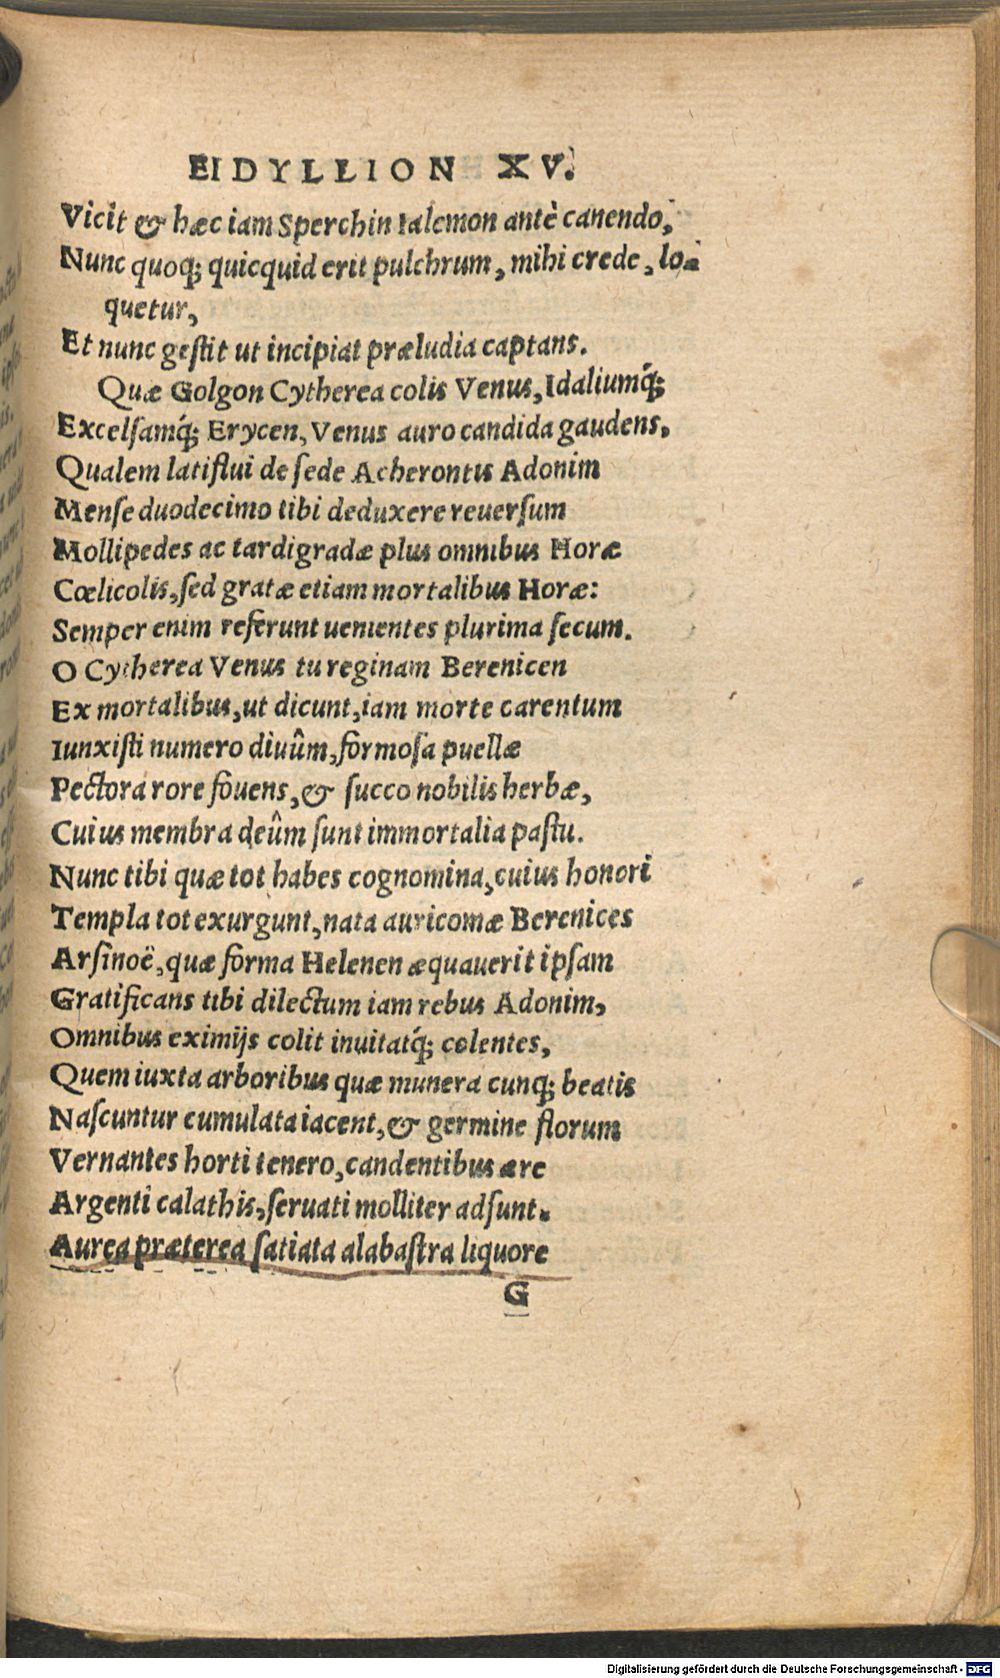 EIDYLLION XV.
Vicit & hæc iam Sperchin Ialemon antè canendo,
Nunc quoq; quicquid erit pulchrum, mihi crede, lo-
quetur,
Et nunc gestit ut incipiat præludia captans.
Quæ Golgon Cytherea colis Venus, Idaliumq́;
Excelsamq́; Erycen, Venus auro candida gaudens,
Qualem latiflui de sede Acherontis Adonim
Mense duodecimo tibi deduxere reuersum
Mollipedes ac tardigradæ plus omnibus Horæ
Cœlicolis, sed gratæ etiam mortalibus Horæ:
Semper enim referunt uenientes plurima secum.
O Cytherea Venus tu reginam Berenicen
Ex mortalibus, ut dicunt, iam morte carentum
Iunxisti numero diuûm, formosa puellæ
Pectora rore fouens, & succo nobilis herbæ,
Cuius membra deûm sunt immortalia pastu.
Nunc tibi quæ tot habes cognomina, cuius honori
Templa tot exurgunt, nata auricomæ Berenices
Arsinoë, quæ forma Helenen æquauerit ipsam
Gratificans tibi dilectum iam rebus Adonim,
Omnibus eximijs colit inuitatq́; colentes,
Quem iuxta arboribus quæ munera cunq; beatis
Nascuntur cumulata iacent, & germine florum
Vernantes horti tenero, candentibus ære
Argenti calathis, seruati molliter adsunt.
Aurea præterea satiata alabastra liquore
G
Digitalisierung gefördert durch die Deutsche Forschungsgemeinschaft - DFG